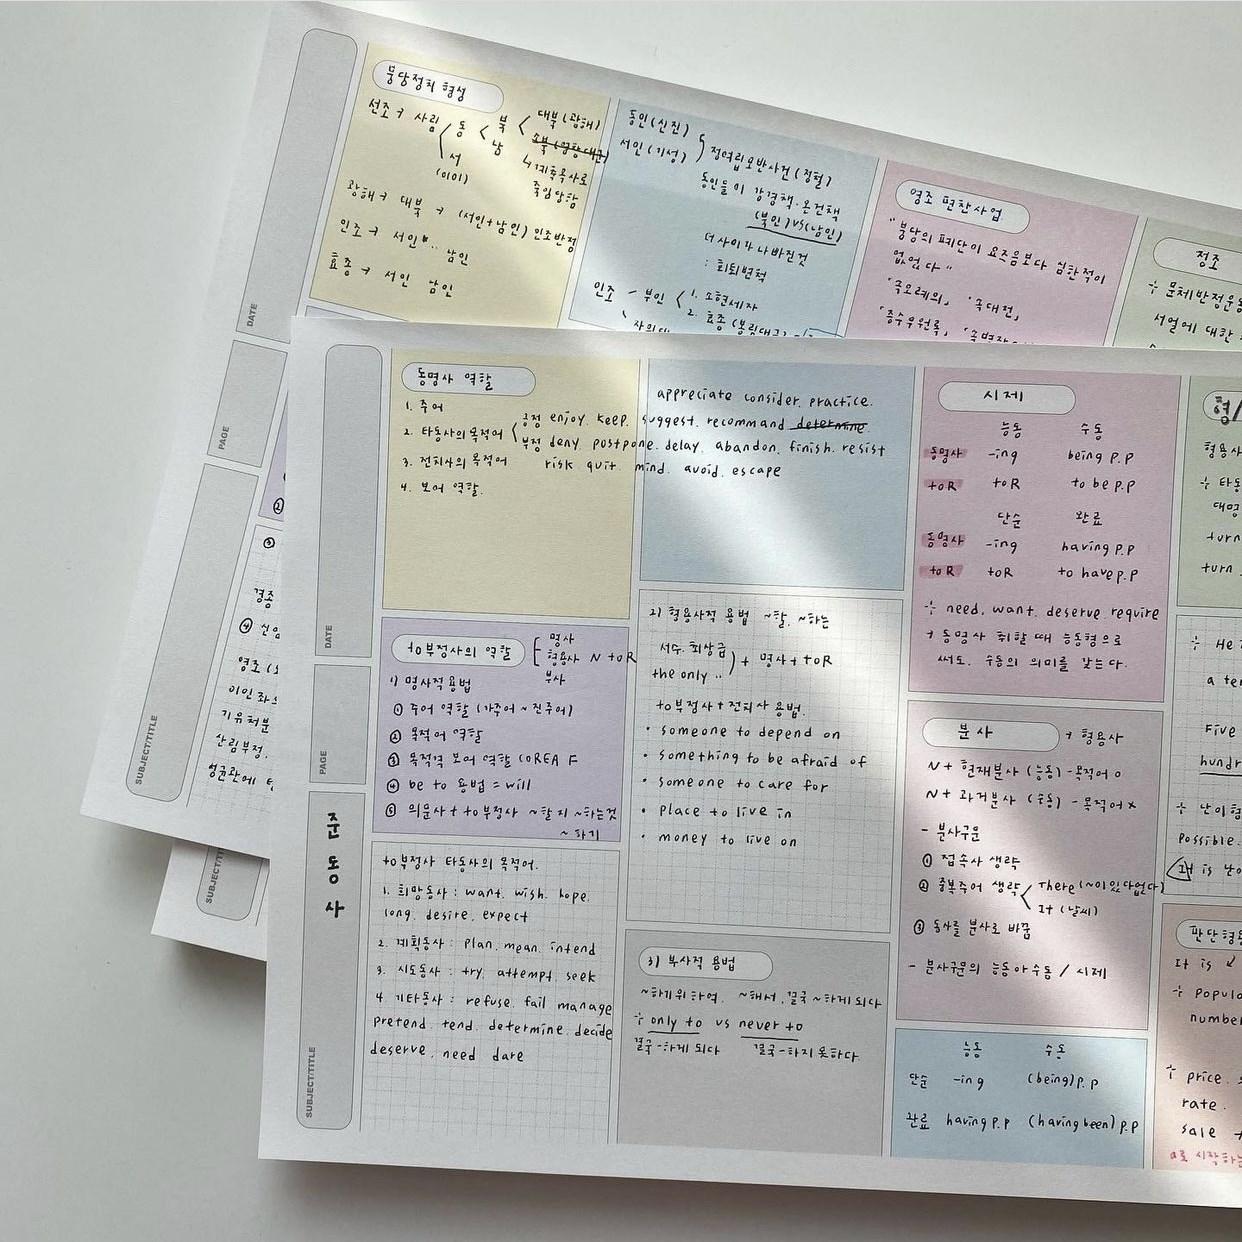 붕당정치 형성
선조 → 사림
동
서
(이이)
북
남
대북 (광해)
소북 (영창대군)
↳ 기축옥사로
죽임당함
광해 → 대북 → (서인+남인) 인조반정
인조 → 서인 .. 남인
효종 → 서인 남인
동인(신진)
서인(기성)
정여립모반사건 (정철)
동인들이 강경책·온건책
(북인) vs (남인)
더 사이가 나빠진것
인조
1. 소현세자
2. 효종 (봉림대군)
영조 편찬사업
"붕당의 폐단이 요즈음보다 심한적이
없었다"
「속오례의」 「속대전」
「증수무원록」
정조
문체반정운동
서얼에 대한
DATE
PAGE
SUBJECT/TITLE
②
③
경종
④
영조
이인좌
기유처분
산림부정.
성균관에
SUBJECT/TIT
DATE
PAGE
준동사
SUBJECT/TITLE
동명사 역할
1. 주어
2. 타동사의 목적어
긍정 enjoy. keep. suggest. recommand determine
부정 deny. postpone. delay. abandon. finish. resist
risk quit. mind. avoid. escape
3. 전치사의 목적어
4. 보어 역할.
appreciate consider. practice.
to부정사의 역할
명사
형용사 N to R
부사
1) 명사적용법
① 주어 역할 (가주어 ~ 진주어)
② 목적어 역할
③ 목적격 보어 역할 COREA F
④ be to 용법 = will
⑤ 의문사 + to부정사 ~할지 ~하는것
~하기
to부정사 타동사의 목적어.
1. 희망동사 : want. wish. hope.
long. desire. expect
2. 계획동사 : plan. mean. intend
3. 시도동사 : try. attempt. seek
4. 기타동사 : refuse. fail manage
pretend. tend. determine. decide
deserve. need dare
2) 형용사적 용법 ~할, ~하는
서수. 최상급
the only ..
+ 명사 + to R
to부정사 + 전치사 용법.
• someone to depend on
• something to be afraid of
• someone to care for
• place to live in
• money to live on
3) 부사적 용법
~하기위하여, ~해서, 결국 ~하게 되다
only to vs never to
결국 ~하게 되다 결국 ~하지 못하다.
시제
능동 수동
동명사 -ing being p.p
to R to R to be p.p
단순 완료
동명사 -ing having p.p
to R to R to have p.p
need. want. deserve require
+ 동명사 취할 때 능동형으로
써도. 수동의 의미를 갖는다.
분사 → 형용사
N + 현재분사 (능동) - 목적어 o
N + 과거분사 (수동) - 목적어 x
- 분사구문
① 접속사 생략
② 중복주어 생략
There (~이 있다없다)
It (날씨)
③ 동사를 분사로 바꿈
- 분사구문의 능동 수동 / 시제
능동 수동
단순 -ing (being) p.p
완료 having p.p (having been) p.p
형/
형용사
타동
turn
turn
He
a ter
Five
hundr
난이형
possible.
It is 난이
판단형용
It is
popula
number
price.
rate.
sale
a로 시작하는